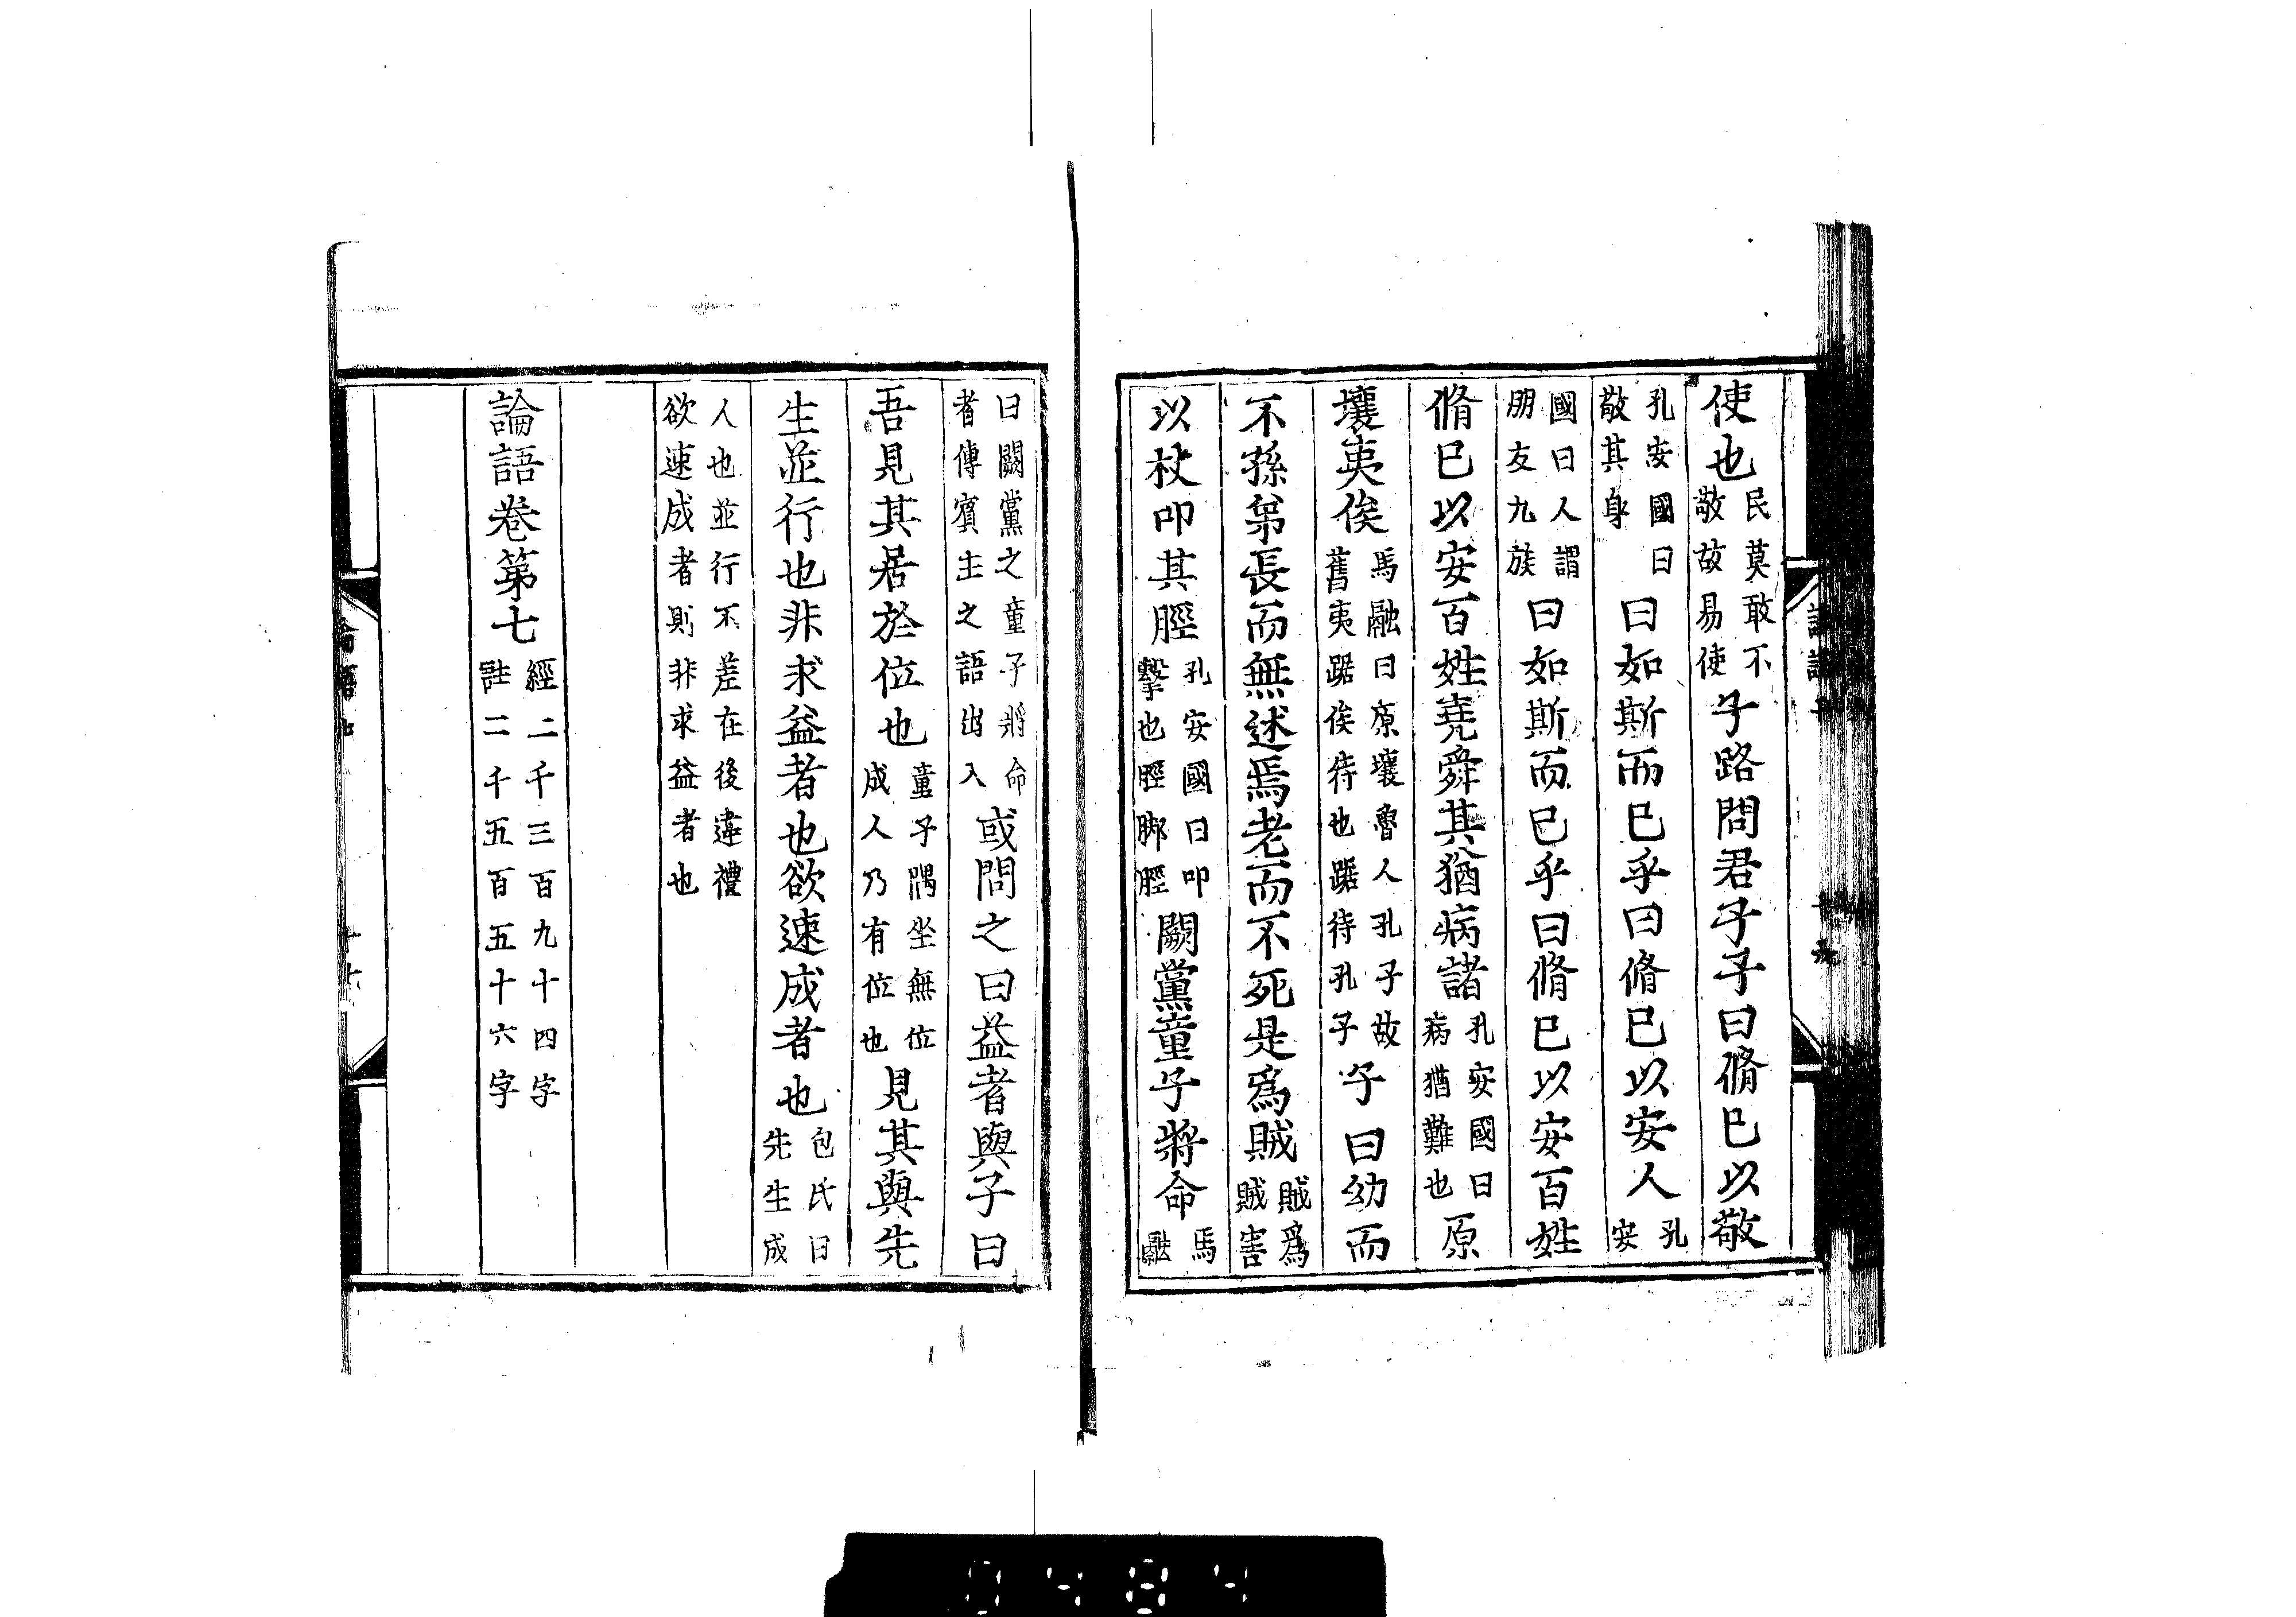 使也民莫敢不敬故易使子路問君子子曰脩已以敬
孔安國曰敬其身曰如斯而已乎曰脩已以安人孔安
國曰人謂朋友九族曰如斯而已乎曰脩已以安百姓
脩已以安百姓堯舜其猶病諸孔安國曰病猶難也原
壤夷俟馬融曰原壤魯人孔子故舊夷踞俟待也踞待孔子子曰幼而
不孫弟長而無述焉老而不死是爲賊賊爲賊害
以杖叩其脛孔安國曰叩擊也脛脚脛闕黨童子將命馬融
曰闕黨之童子將命者傳賓主之語出入或問之曰益者與子曰
吾見其居於位也童子隅坐無位成人乃有位也見其與先
生並行也非求益者也欲速成者也包氏曰先生成
人也並行不差在後違禮欲速成者則非求益者也
論語卷第七經二千三百九十四字註二千五百五十六字